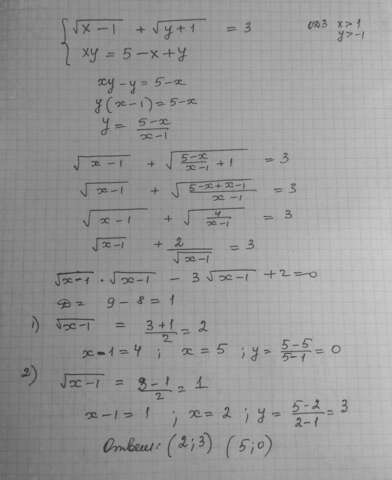 { √(x-1) + √(y+1) = 3 ОДЗ x>1
y>-1
xy = 5-x+y
xy-y = 5-x
y(x-1) = 5-x
y = (5-x)/(x-1)
√(x-1) + √((5-x)/(x-1) + 1) = 3
√(x-1) + √((5-x+x-1)/(x-1)) = 3
√(x-1) + √(4/(x-1)) = 3
√(x-1) + 2/√(x-1) = 3
√(x-1) · √(x-1) - 3√(x-1) + 2 = 0
D = 9-8 = 1
1) √(x-1) = (3+1)/2 = 2
x-1 = 4 ; x = 5 ; y = (5-5)/(5-1) = 0
2) √(x-1) = (3-1)/2 = 1
x-1 = 1 ; x = 2 ; y = (5-2)/(2-1) = 3
Ответ: (2;3) (5;0)